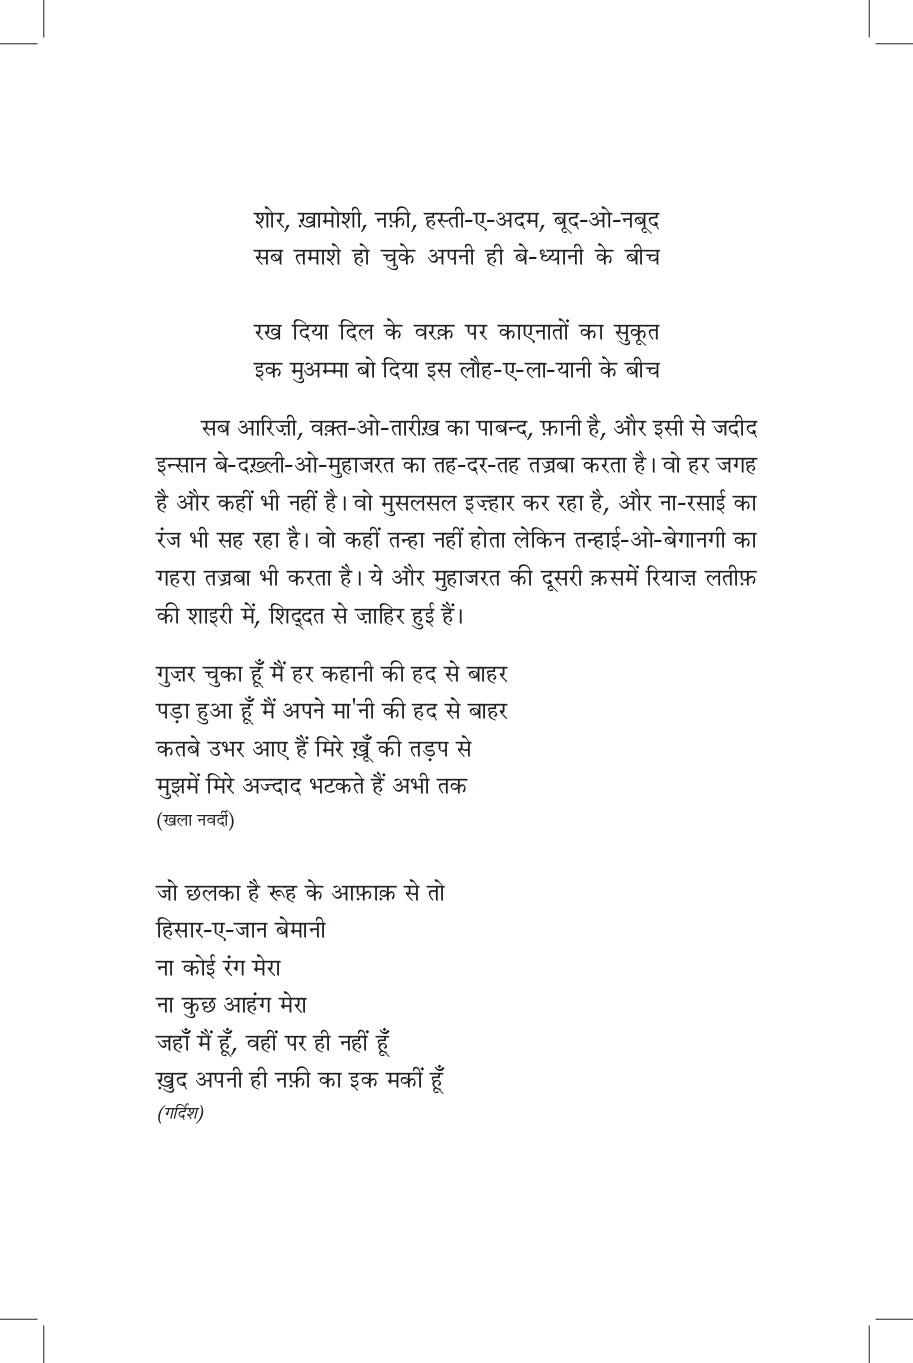 शोर, ख़ामोशी, नफ़ी, हस्ती-ए-अदम, बूद-ओ-नबूद
सब तमाशे हो चुके अपनी ही बे-ध्यानी के बीच
रख दिया दिल के वरक़ पर काएनातों का सुकूत
इक मुअम्मा बो दिया इस लौह-ए-ला-यानी के बीच
सब आरिज़ी, वक़्त-ओ-तारीख़ का पाबन्द, फ़ानी है, और इसी से जदीद
इन्सान बे-दख़्ली-ओ-मुहाजरत का तह-दर-तह तज्रबा करता है। वो हर जगह
है और कहीं भी नहीं है। वो मुसलसल इज़्हार कर रहा है, और ना-रसाई का
रंज भी सह रहा है। वो कहीं तन्हा नहीं होता लेकिन तन्हाई-ओ-बेगानगी का
गहरा तज्रबा भी करता है। ये और मुहाजरत की दूसरी क़समें रियाज़ लतीफ़
की शाइरी में, शिद्दत से ज़ाहिर हुई हैं।
गुज़र चुका हूँ मैं हर कहानी की हद से बाहर
पड़ा हुआ हूँ मैं अपने मा'नी की हद से बाहर
कतबे उभर आए हैं मिरे ख़ूँ की तड़प से
मुझमें मिरे अज्दाद भटकते हैं अभी तक
(खला नवर्दी)
जो छलका है रूह के आफ़ाक़ से तो
हिसार-ए-जान बेमानी
ना कोई रंग मेरा
ना कुछ आहंग मेरा
जहाँ मैं हूँ, वहीं पर ही नहीं हूँ
ख़ुद अपनी ही नफ़ी का इक मकीं हूँ
(गर्दिश)